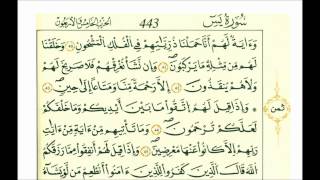 سُورَةُ يَسٓ 443 الحزب الخامس والأربعون
وَءَايَةٌ لَّهُمُۥٓ أَنَّا حَمَلْنَا ذُرِّيَّٰتِهِمْ فِي الْفُلْكِ الْمَشْحُونِ وَخَلَقْنَا
لَهُم مِّن مِّثْلِهِۦ مَا يَرْكَبُونَ وَإِن نَّشَأْ نُغْرِقْهُمْ فَلَا صَرِيخَ لَهُمْ
وَلَا هُمْ يُنقَذُونَ إِلَّا رَحْمَةً مِّنَّا وَمَتَٰعًا إِلَىٰ حِينٍ
ثمن
وَإِذَا قِيلَ لَهُمُ اتَّقُوا مَا بَيْنَ أَيْدِيكُمْ وَمَا خَلْفَكُمْ
لَعَلَّكُمْ تُرْحَمُونَ وَمَا تَأْتِيهِم مِّنْ ءَايَةٍ مِّنْ ءَايَٰتِ
رَبِّهِمْ إِلَّا كَانُوا عَنْهَا مُعْرِضِينَ وَإِذَا قِيلَ لَهُمْ أَنفِقُوا مِمَّا رَزَقَكُمُ
اللَّهُ قَالَ الَّذِينَ كَفَرُوا لِلَّذِينَ ءَامَنُوا أَنُطْعِمُ مَن لَّوْ يَشَآءُ